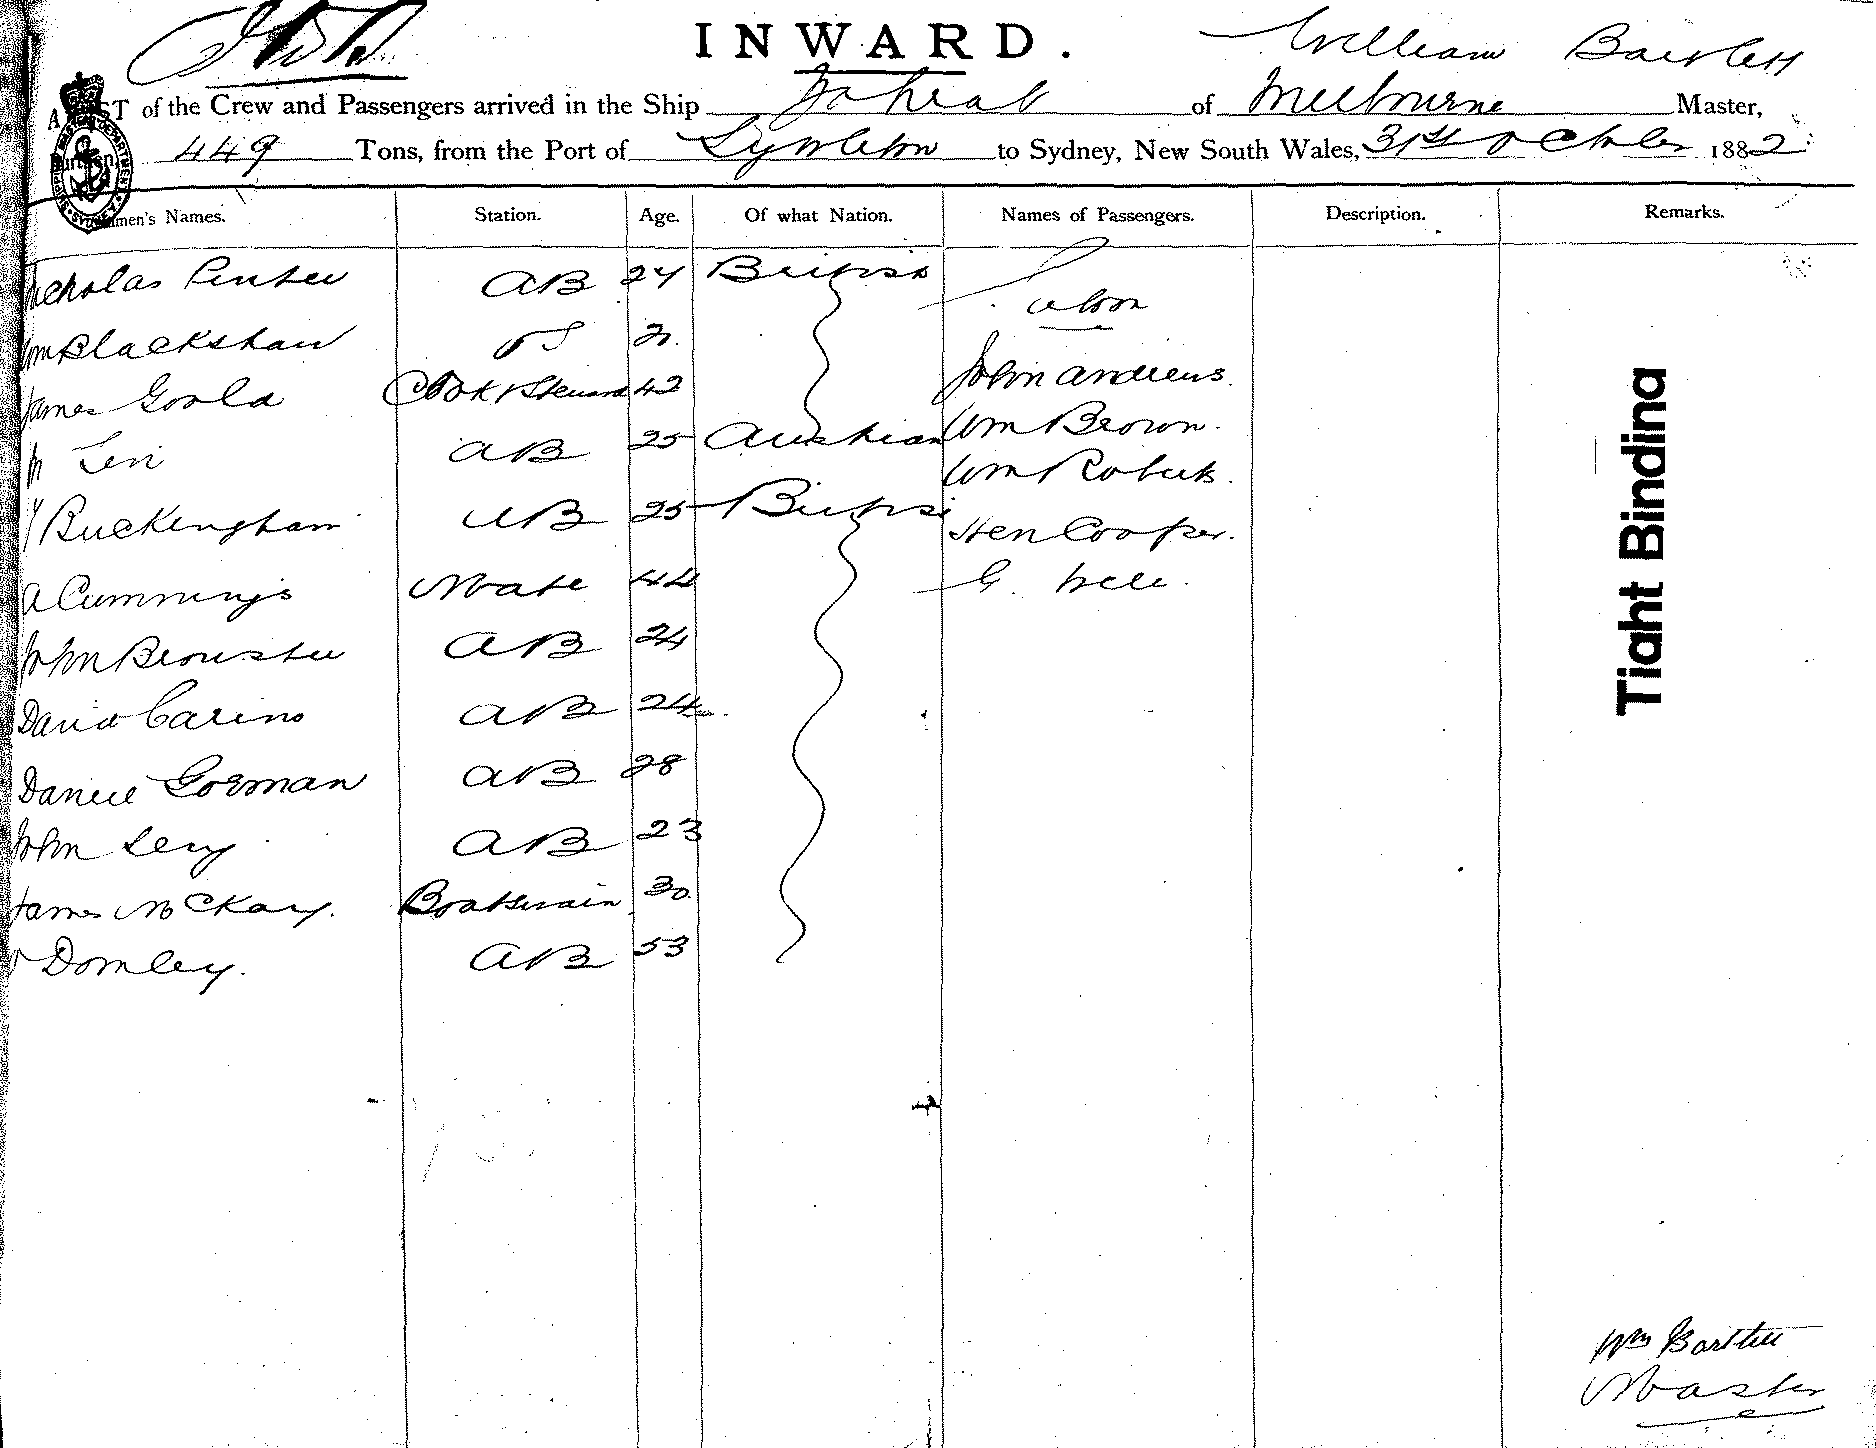 INWARD.
William Bartlett
A LIST of the Crew and Passengers arrived in the Ship of Melbourne Master,
Burthen 449 Tons, from the Port of Lyttleton to Sydney, New South Wales, 31st October 1882
Seamen's Names. Station. Age. Of what Nation. Names of Passengers. Description. Remarks.
Nicholas AB 24 British
Saloon
Wm Blackshaw OS 21
James Goold Cook & Steward 42 John Andrews.
Levi AB 25 Austrian Wm Brown.
Wm Roberts.
Buckingham AB 25 British
Hen Cooper.
A Cummings Mate 44 G.
John Brewster AB 24
David Cairns AB 24
Daniel Gorman AB 28
John Levy AB 23
James McKay. Boatswain 30
Domley. AB 53
Tight Binding
Wm Bartlett
Master